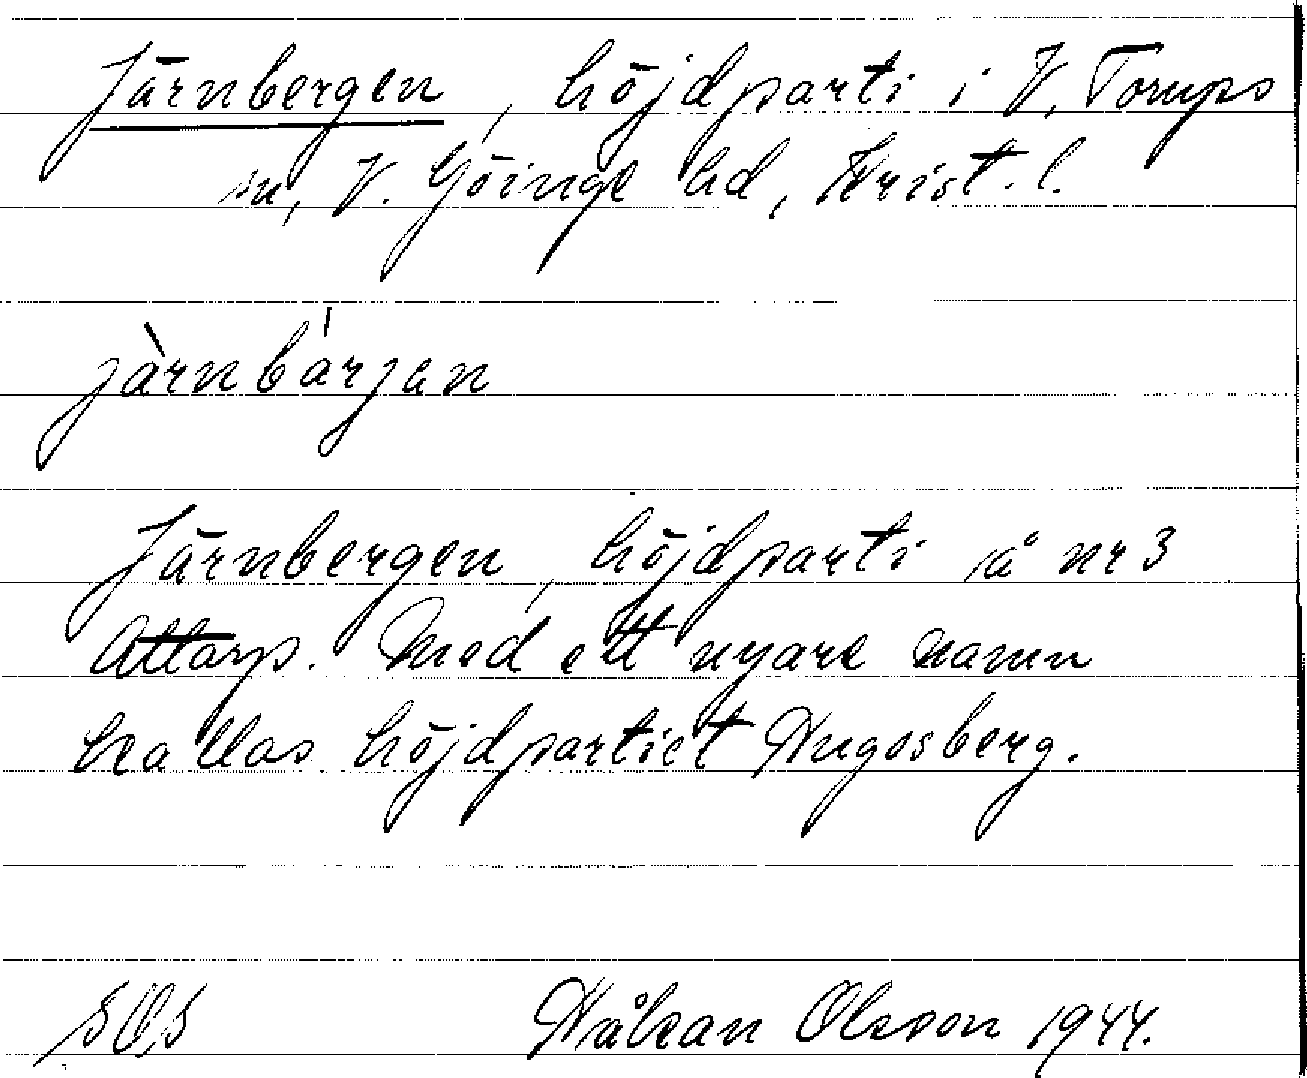 Järnbergen, höjdparti i V. Torups
sn, V. Göinge hd, Krist. l.
jàrnbárjan
Järnbergen, höjdparti å nr 3
Attarp. Med ett nyare namn
kallas höjdpartiet Hugosberg.
SOS Håkan Olsson 1944.